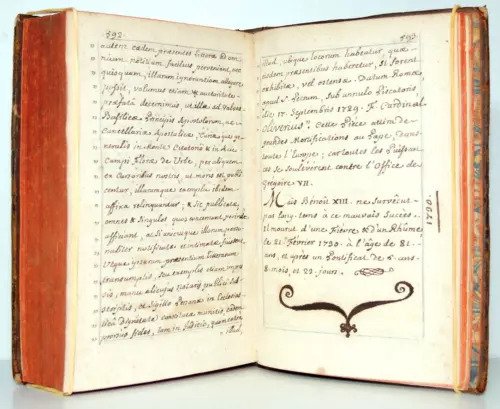 592
autem eadem præsentes literæ ad om-
nium notitiam facilius perveniant, nec
quisquam, illarum ignorantiam allegare
possit, volumus etiam & autoritate
præfata decernimus, ut illæ ad Valvas
Basilicæ Principis Apostolorum, ac
Cancellariæ Apostolicæ, Curiæque ge-
neralis in Monte Citatorio & in Acie
Campi Floræ de Urbe, per aliquem
ex Cursoribus nostris, ut moris est publi-
centur, illarumque exempla ibidem
affixa relinquantur, & sic publicatæ,
omnes & singulos quos concernunt perinde
afficiant, ac si unicuique illorum perso-
naliter notificatæ et intimatæ fuissent
utque ipsarum præsentium litterarum
transumptis, seu exemplis etiam impres-
sis, manu alicujus Notarii publici sub-
scriptis, et Sigillo Personæ in Ecclesias-
ticâ Dignitate constitutæ munitis, eadem
prorsus fides, tam in Judicio, quam extra
illud,
593
illud, ubique locorum habeatur, quæ
eisdem præsentibus haberetur, si forent
exhibitæ, vel ostensæ. Datum Romæ
apud S. Petrum, sub annulo Piscatoris,
die 17. Septembris 1729. F. Cardinal
Oliverius, Cette Piéce attira de
grandes Mortifications au Pape, dans
toute l'Europe; car toutes les Puissan-
ces se soulevérent contre l'Office de
Gregoire VII.
Mais Benoît XIII. ne survêcut
pas long-tems à ce mauvais Succès.
Il mourut d'une Fiévre & d'un Rhûme
le 21. Février 1730. à l'âge de 81-
ans, et après un Pontificat de 5. ans
8. mois, et 23. jours.
1730.